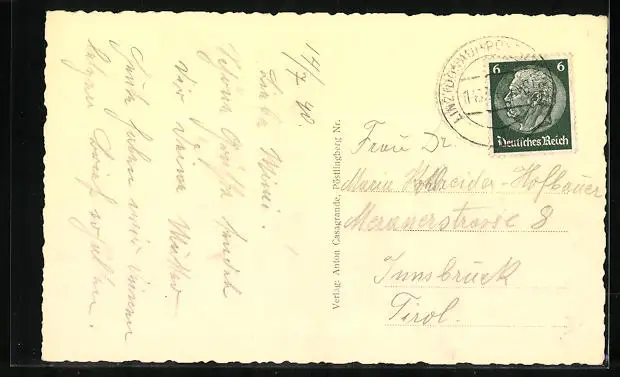 14/7 40.
Liebe Mimi!
Schöne Grüße sendet
Dir Deine Mutter
haben wir Deinen
Brief erhalten.
Verlag: Anton Casagrande, Pöstlingberg Nr.
LINZ
6 6
Deutsches Reich
Frau Dr.
Maria Schneider-Hofbauer
Meranerstrasse 8
Innsbruck
Tirol.